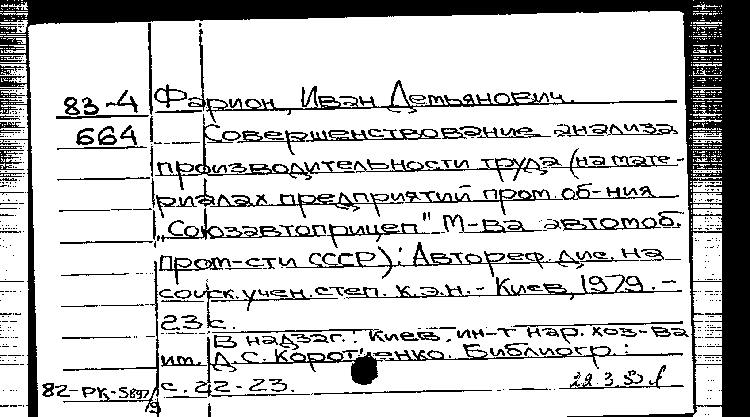 83-4 Фарион, Иван Демьянович.
664 Совершенствование анализа
производительности труда (на мате-
риалах предприятий пром. об-ния
"Союзавтоприцеп" М-ва автомоб.
пром-сти СССР): Автореф. дис. на
соиск. учен. степ. к.э.н. - Киев, 1979. -
23 с.
В надзаг.: Киев. ин-т нар. хоз-ва
им. Д.С. Коротченко. Библиогр.:
с. 22-23.
82-РК-5897